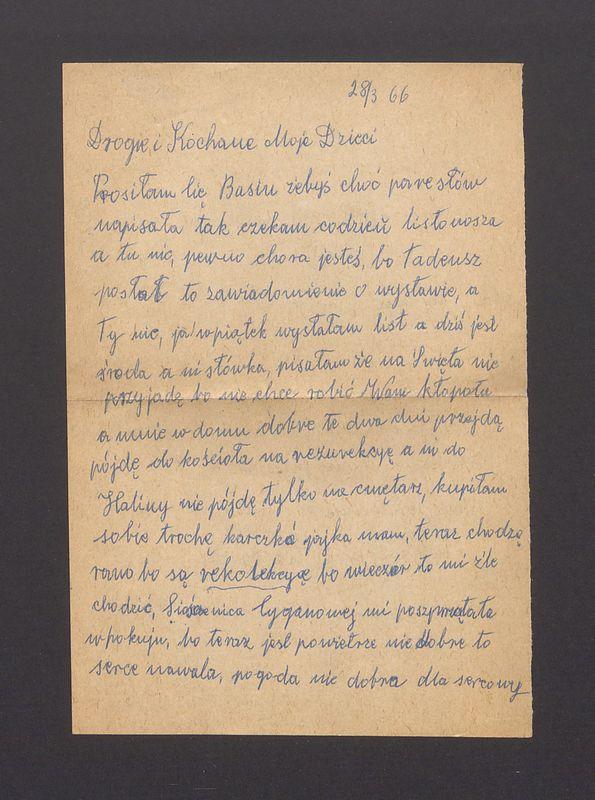 28/3 66
Drogie i Kochane Moje Dzieci
Prosiłam Cię Basiu żebyś choć parę słów
napisała tak czekam codzień listonosza
a tu nic, pewno chora jesteś, bo Tadeusz
posłał to zawiadomienie o wystawie, a
Ty nic, ja w piątek wysłałam list a dziś jest
środa a ni słówka, pisałam że na Święta nie
przyjadę bo nie chce robić Wam kłopotu
a mnie w domu dobre te dwa dni przejdą
pójdę do kościoła na rezurekcyę a ni do
Haliny nie pójdę tylko na cmętarz, kupiłam
sobie trochę karczku jajka mam, teraz chodzę
rano bo są rekolekcyę bo wieczór to mi źle
chodzić, Cyganowej mi poszprzątała
w pokuju, bo teraz jest powietrze nie dobre to
serce nawala, pogoda nie dobra dla sercowy